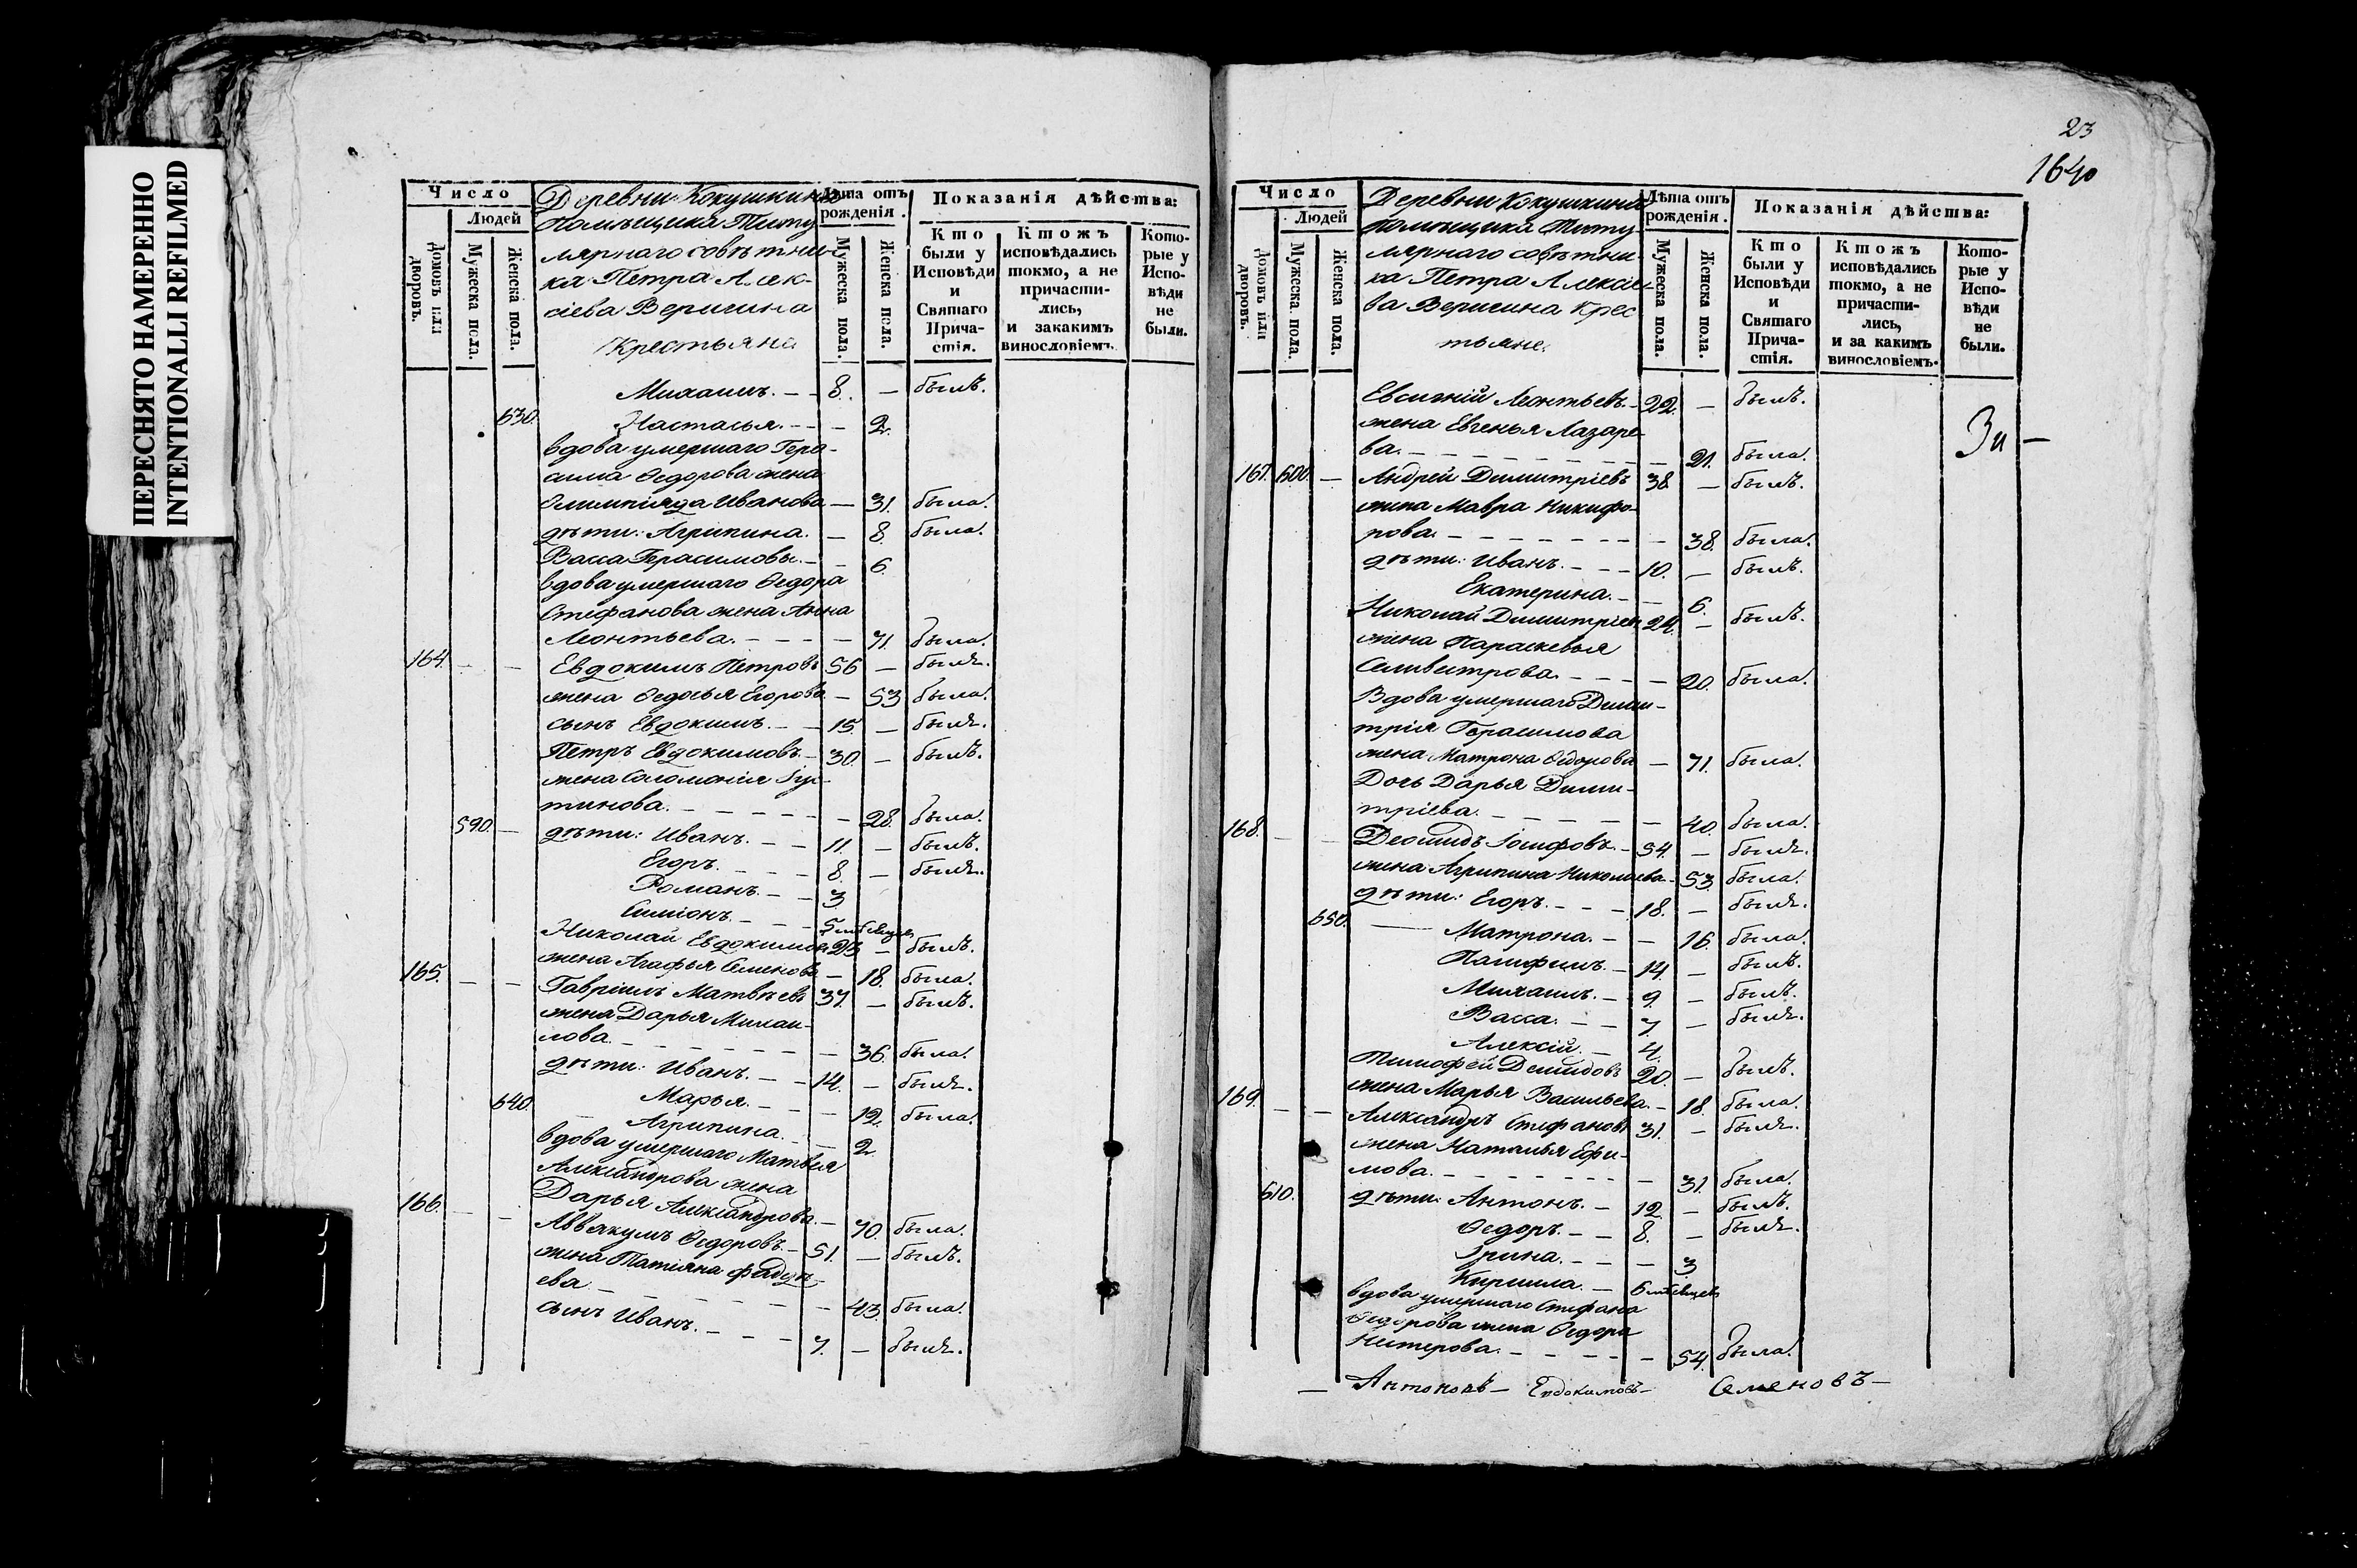 ПЕРЕСНЯТО НАМЕРЕННО
INTENTIONALLI REFILMED
Число
Людей
домовъ или дворовъ.
Мужеска пола.
Женска пола.
Деревни Кокушкина
помѣщика Титу
лярнаго совѣтни-
ка Петра Алек-
сіева Веригина
Крестьяне
Лѣта отъ рожденія.
Мужеска пола.
Женска пола.
Показанія дѣйства:
Кто были у Исповѣди и Святаго Прича-стія.
Ктожъ исповѣдались токмо, а не причасти-лись, и закакимъ винословіемъ.
Кото-рые у Испо-вѣди не были.
Михаилъ. – – 8. – былъ.
630. Настасья. – – – 2.
вдова умершаго Гера-
сима Ѳедорова жена
Олимпіяда Иванова – 31. была.
дѣти: Агрипина. – 8. была.
Васса Герасимовы. – – 6.
вдова умершаго Ѳедора
Стефанова жена Анна
Леонтьева. – – – – 71. была.
164. – – Евдокимъ Петровъ 56 – былъ.
жена Ѳедосья Егорова – 53 была.
сынъ Евдокимъ. – – 15. – былъ.
Петръ Евдокимовъ. – 30. – былъ.
жена Соломонія Іус-
тинова. – – – – – 28. была.
590. – дѣти: Иванъ. – – 11. – былъ.
Егоръ. – – – 8. – былъ.
Романъ. – – 3
Симіонъ. – – – 5 мѣсяцев
Николай Евдокимовъ 23 – былъ.
жена Агафья Семенова – 18. была.
165. – – Гавріилъ Матвѣевъ 37. – былъ.
жена Дарья Михаи-
лова. – – – – – – 36. была.
дѣти: Иванъ. – – 14. – былъ.
640. Марья. – – – 12. была.
Агрипина. – – 2.
вдова умершаго Матвея
Александрова жена
Дарья Александрова. – 70. была.
166. – – Аввакумъ Ѳедоровъ. – 51. – былъ.
жена Татіяна Фадѣ-
ева – – – – – – – 43. была.
сынъ Иванъ. – – – 7. – былъ.
23
1640
Число
Людей
домовъ или дворовъ.
Мужеска пола.
Женска пола.
Деревни Кокушкина
помѣщика Титу
лярнаго совѣтни-
ка Петра Алексіе-
ва Веригина Крес
тьяне.
Лѣта отъ рожденія.
Мужеска пола.
Женска пола.
Показанія дѣйства:
Кто были у Исповѣди и Святаго Прича-стія.
Ктожъ исповѣдались токмо, а не причасти-лись, и за какимъ винословіемъ.
Кото-рые у Испо-вѣди не были.
Евсигній Леонтьевъ. – 22. – былъ.
жена Евгенья Лазаре-
ва. – – – – – – – – 21. была.
167. 600. – Андрей Димитріевъ 38. – былъ.
жена Мавра Никифо-
рова. – – – – – – – – 38. была.
дѣти: Иванъ. – – – 10. – былъ.
Екатерина. – – 6.
Николай Димитріевъ 24. – былъ.
жена Параскевья
Селивестрова. – – – – 20. была.
Вдова умершаго Дими-
трія Герасимова
жена Матрона Ѳедорова – 71. была.
Дочь Дарья Дими-
тріева. – – – – – – 40. была.
168. – – Деомидъ Іосифовъ. – 54. – былъ.
жена Агрипина Николаева – 53. была.
дѣти: Егоръ. – – – 18. – былъ.
650. Матрона. – – 16. была.
Памфилъ. – 14. – былъ.
Михаилъ. – 9. – былъ.
Васса. – – 7. – былъ.
Алексій. – 4.
Тимофей Демидовъ 20. – былъ.
жена Марья Васильева. – 18. была.
169. – – Александръ Стефановъ 31. – былъ.
жена Наталья Ефи-
мова. – – – – – – – – 31. была.
610. дѣти: Антонъ. – 12. – былъ.
Ѳедоръ. – – 8. – былъ.
Ірина. – – – – 3.
Кирилла. – 6 мѣсяцевъ
вдова умершаго Стефана
Ѳедорова жена Ѳедора
Нестерова. – – – – – 54. была.
– Антоновъ – Евдокимовъ – Семеновъ –